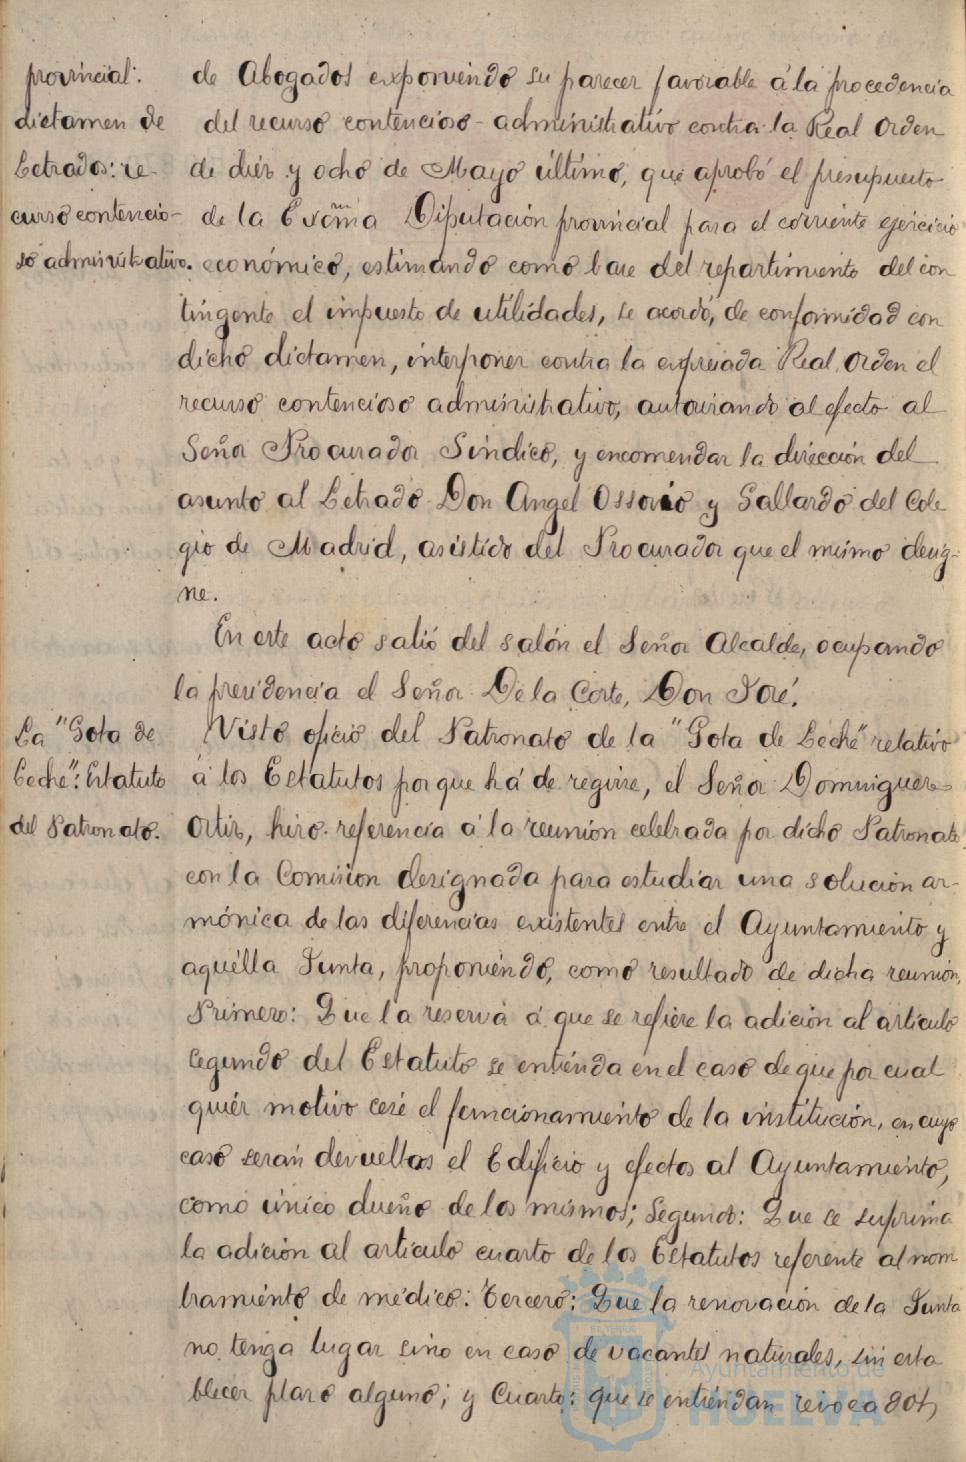 provincial:
dictamen de
Letrados: re-
curso contencio-
so administrativo.
de Abogados exponiendo su parecer favorable á la procedencia
del recurso contencioso-administrativo contra la Real Orden
de diez y ocho de Mayo último, que aprobó el presupuesto
de la Excma Diputación provincial para el corriente ejercicio
económico, estimando como base del repartimiento del con
tingente el impuesto de utilidades, se acordó, de conformidad con
dicho dictamen, interponer contra la expresada Real Orden el
recurso contencioso administrativo, autorizando al efecto al
Señor Procurador Síndico, y encomendar la dirección del
asunto al Letrado Don Angel Ossorio y Gallardo del Cole
gio de Madrid, asistido del Procurador que el mismo desig-
ne.
En este acto salió del salón el Señor Alcalde, ocupando
la presidencia el Señor De la Corte, Don José.
La "Gota de
Leche": Estatuto
del Patronato.
Visto oficio del Patronato de la "Gota de Leche" relativo
á los Estatutos por que há de regirse, el Señor Dominguez
Ortiz, hizo referencia á la reunión celebrada por dicho Patronato
con la Comision designada para estudiar una solución ar-
mónica de las diferencias existentes entre el Ayuntamiento y
aquella Junta, proponiendo, como resultado de dicha reunión,
Primero: Que la reserva á que se refiere la adición al artículo
segundo del Estatuto se entienda en el caso de que por cual
quier motivo cese el funcionamiento de la institución, en cuyo
caso serán devueltos el Edificio y efectos al Ayuntamiento,
como único dueño de los mismos; Segundo: Que se suprima
la adición al artículo cuarto de los Estatutos referente al nom
bramiento de médico: Tercero: Que la renovación de la Junta
no tenga lugar sino en caso de vacantes naturales, sin esta
blecer plazo alguno; y Cuarto: que se entiendan revocados,
Ayuntamiento de
HUELVA